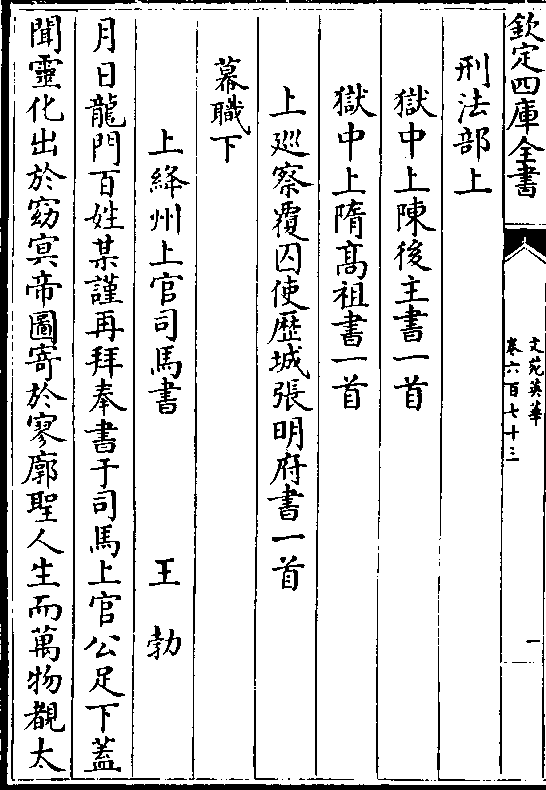 欽定四庫全書
文苑英華
卷六百七十三
一
刑法部上
獄中上陳後主書一首
獄中上隋髙祖書一首
上廵察覆囚使歴城張明府書一首
幕職下
上絳州上官司馬書 王勃
月日龍門百姓某謹再拜奉書于司馬上官公足下蓋
聞靈化出於窈冥帝圖寄於寥廓聖人生而萬物覩太